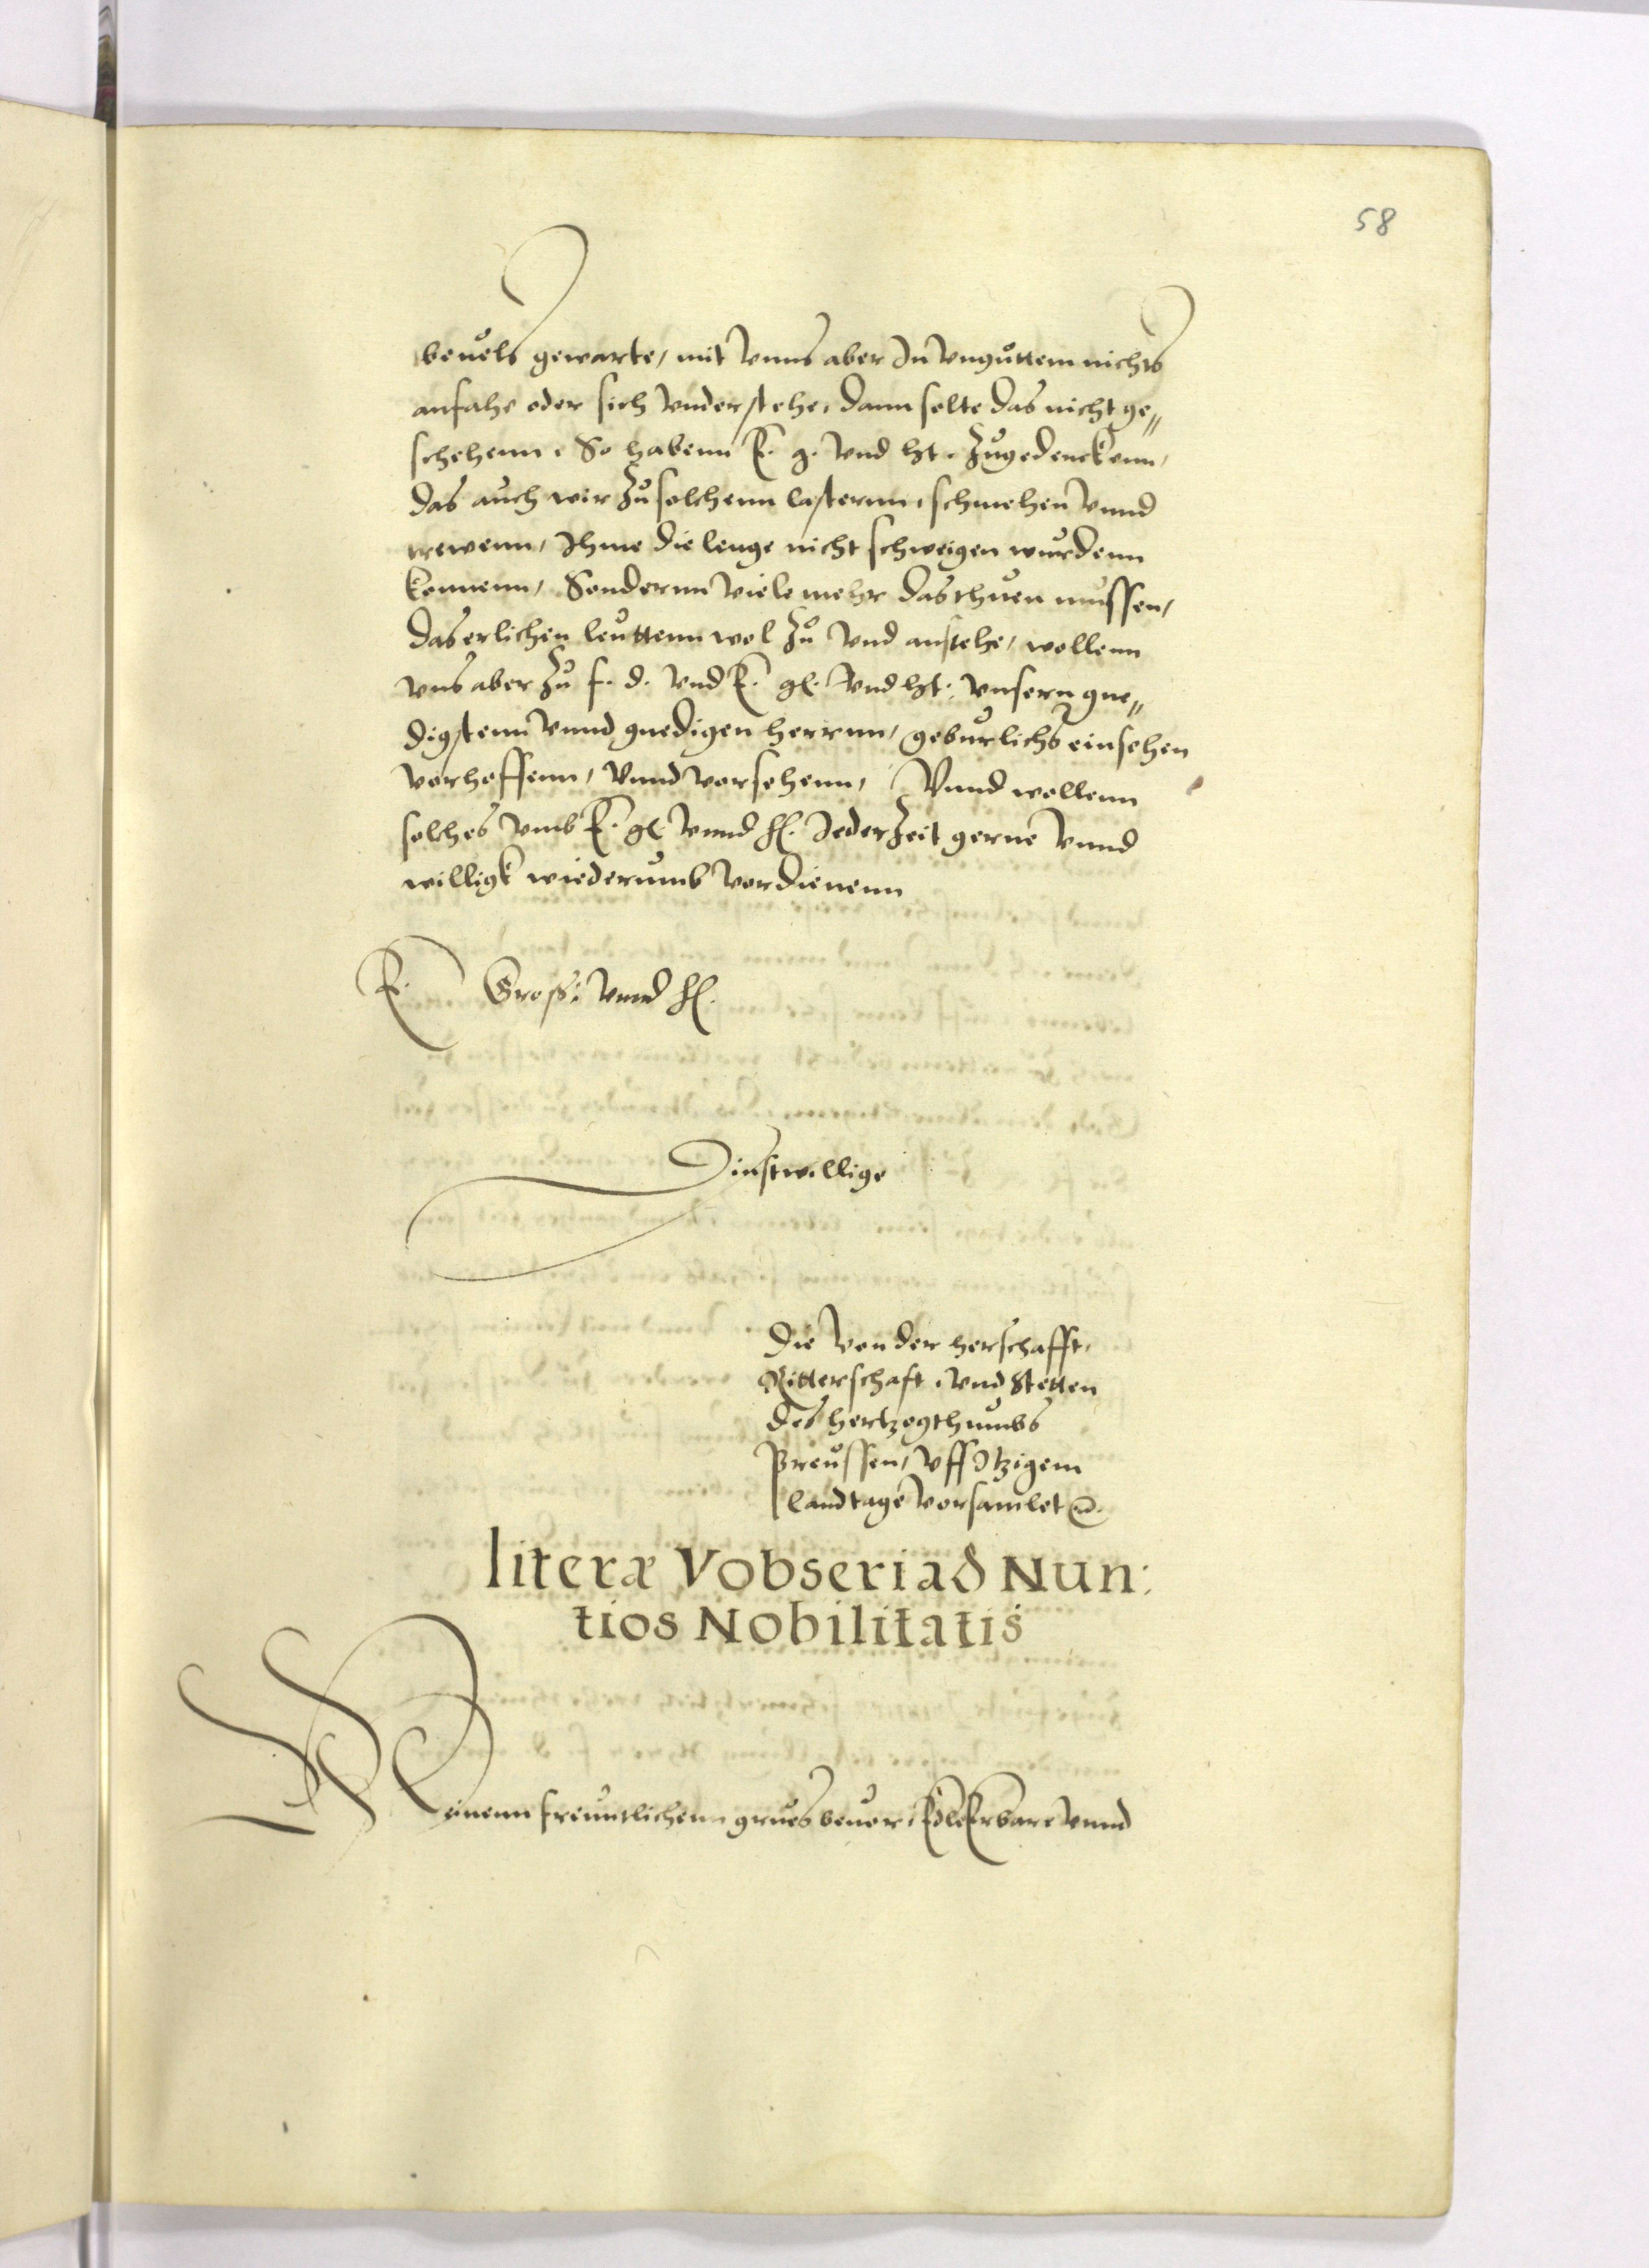 58
beuels gewarte, mit vnns aber In vnguttem nichts
anfahe oder sich vnderstehe, dann solte das nicht ge„
schehenn. So habenn E. g. vnd ht. Zugedenckenn,
das auch wir Zu solchenn lasternn, schmehen vnnd
trewenn, Ihme die lenge nicht schweigen wurdenn
konnenn, Sondernn viele mehr das thuen mussen,
das erlichen leuttenn wol Zu vnd anstehe, wollenn
vns aber Zu f. d. vnd E. gl. vnd ht. vnsern gne„
digstenn vnnd gnedigen herrnn, geburlichs einsehen
vorhoffenn, vnnd vorsehenn, Vnnd wollenn
solches vmb E. gl. vnnd hl. Jeder Zeit gerne vnnd
willigk wiederumb vordienenn
E. Groß: vnnd hl.
Dinstwillige
Die von der herschafft,
Ritterschaft, vnd Stetten
des hertzogthumbs
Preussen, vff Itzigem
landtage vorsamlet
literæ Vobseri ad Nun:
tios Nobilitatis
Meinenn freuntlichenn grues beuor, Edle Erbare vnnd